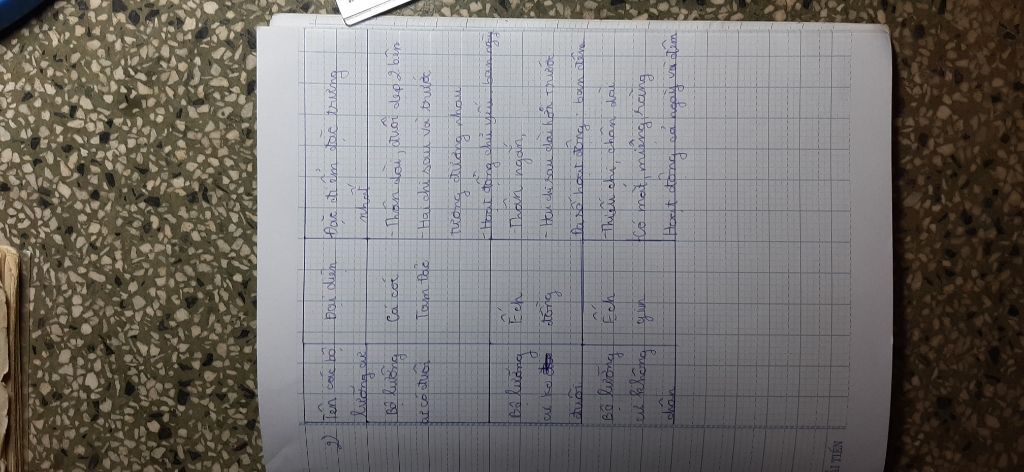 2)
Tên các bộ lưỡng cư
Đại diện
Đặc điểm đặc trưng nhất
Bộ lưỡng cư có đuôi
Cá cóc Tam Đảo
- Thân dài đuôi dẹp 2 bên
- Hai chi sau và trước
tương đương nhau
- Hoạt động chủ yếu ban ngày
Bộ lưỡng cư ko đuôi
Ếch đồng
- Thân ngắn,
- Hai chi sau dài hơn trước
Đa số hoạt động ban đêm
Bộ lưỡng cư không chân
Ếch giun
- Thiếu chi, thân dài
Có mắt, miệng, răng
Hoạt động cả ngày và đêm
TIẾN